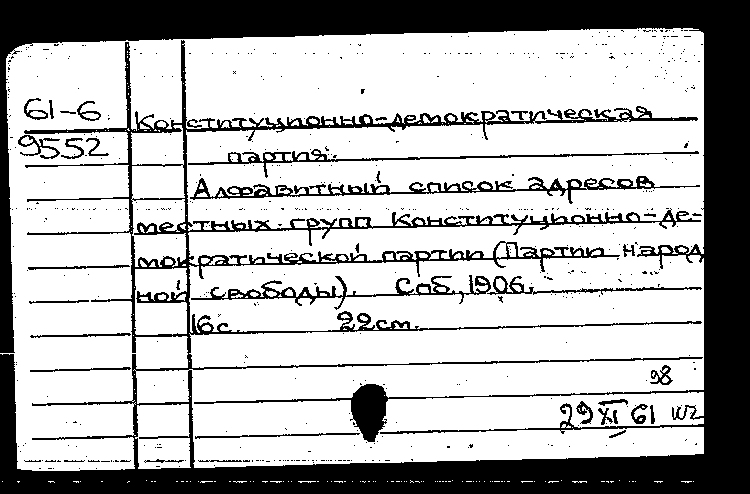 61-6
Конституционно-демократическая
9552
партия.
Алфавитный список адресов
местных групп Конституционно-де-
мократической партии (Партии народ
ной свободы). Спб., 1906.
16с. 22cm.
98
29 XI 61